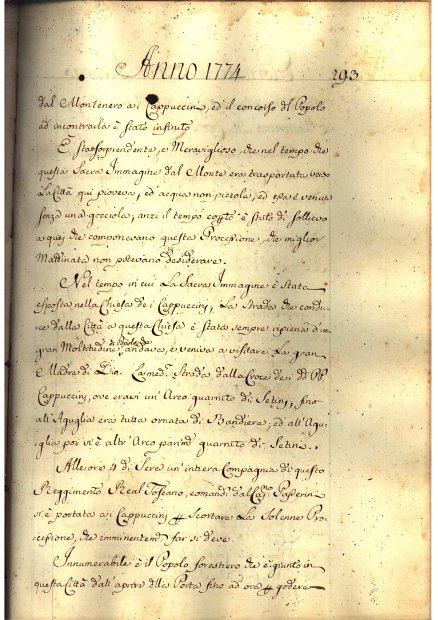 Anno 1774 293
dal Montenero a i Cappuccini, ed il concorso del Popolo
ad incontrarla è stato infinito
E sta sorprendente, e Meraviglioso, che nel tempo che
questa Sacra Immagine dal Monte era trasportata verso
La Città qui pioveva, ed acqua non piccola, ed essa è venuta
senza una gocciola, anzi il tempo cop.to è stato di sollievo
a quei che componevano questa Processione, che miglior
Mattinata non potevano desiderare.
Nel tempo in cui La Sacra Immagine è Stata
esposta nella Chiesa de i Cappuccini, La Strada che condu-
ce dalla Città a questa Chiesa è stata sempre ripiena d'un
gran Moltitudine di Popolo che andava, e veniva a visitare La gran
Madre di Dio. La med.a Strada dalla Croce de i dd. PP.
Cappuccini, ove eravi un'Arco guarnito di Setini, fino
all'Aguglia era tutta ornata di Bandiere, ed all'Agu-
glia poi vi è altr'Arco parim.te guarnito di Setini..
Alle ore 4 di Sera un'intiera Compagnia di questo
Reggimento Real Toscano, comand. dal Cap.no
si è portata a i Cappuccini p Scortare La Solenne Pro-
cessione, che imminentem.e far si deve.
Innumerabile è il Popolo forestiero che è giunto in
questa Città dall'aprire della Porta fino ad ore p godere